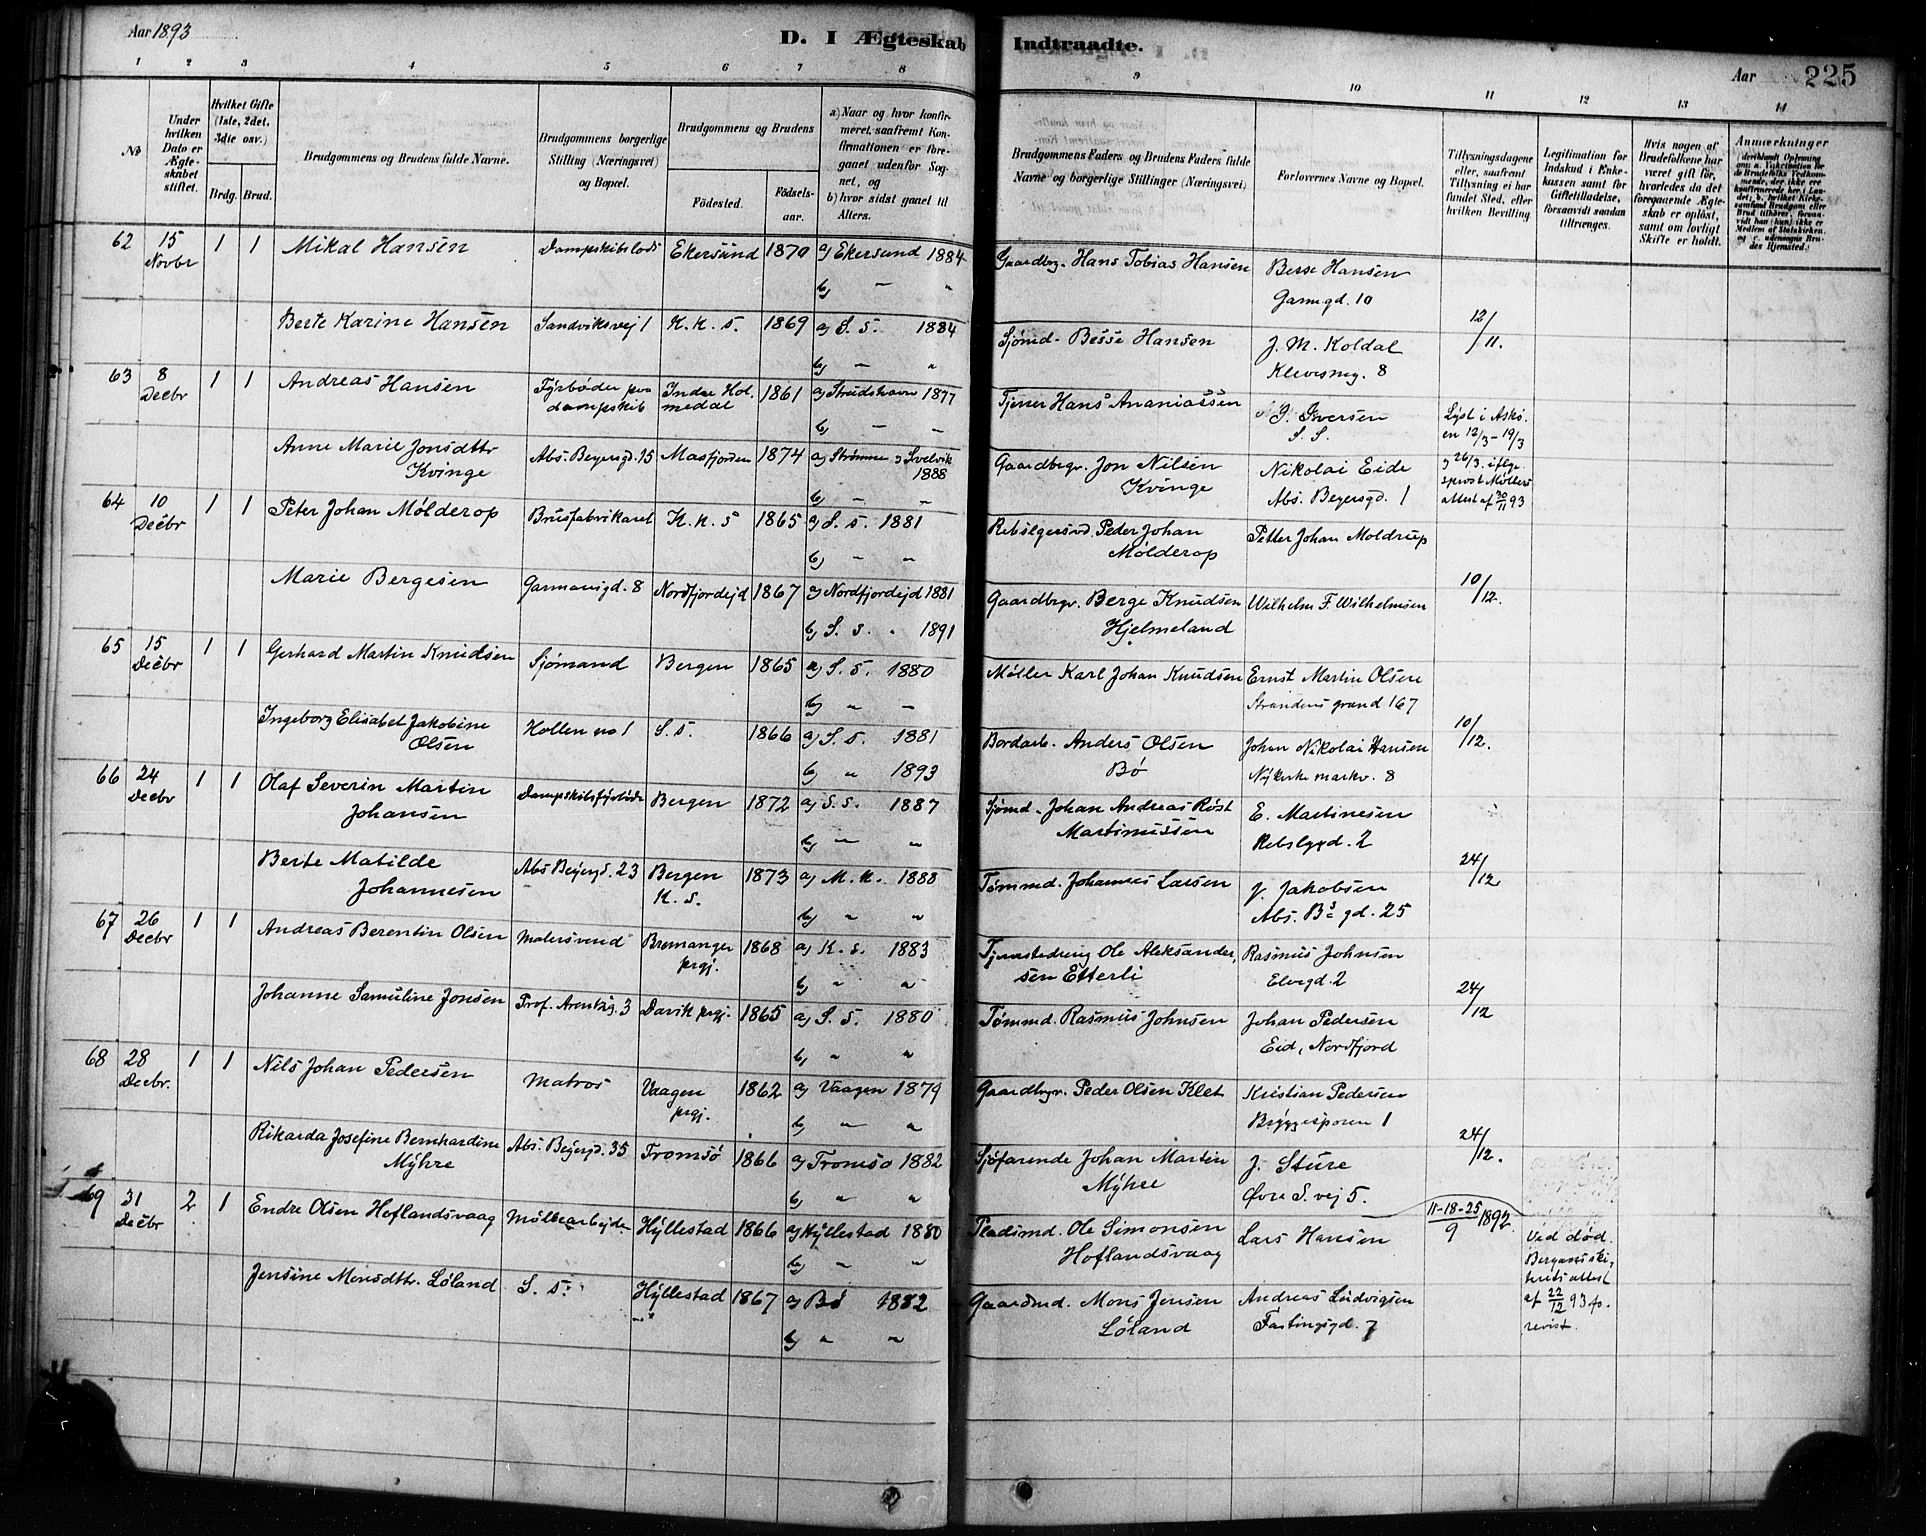 Aar 1893
D. I Ægteskab Indtraadte.
Aar 225
1 2 3 4 5 6 7 8 9 10 11 12 13 14
№
Under hvilken Dato er Ægteskabet stiftet.
Hvilket Gifte (1ste, 2det, 3die osv.)
Brdg. Brud.
Brudgommens og Brudens fulde Navne.
Brudgommens borgerlige Stilling (Næringsvei) og Bopæl.
Brudgommens og Brudens
Fødested. Fødselsaar.
a) Naar og hvor konfirmeret, saafremt Konfirmationen er foregaaet udenfor Sognet, og
b) hvor sidst gaaet til Alters.
Brudgommens Faders og Brudens Faders fulde Navne og borgerlige Stillinger (Næringsvei)
Forlovernes Navne og Bopæl.
Tillysningsdagene eller, saafremt Tillysning ei har fundet Sted, efter hvilken Bevilling
Legitimation for Indskud i Enkekassen samt for Giftetilladelse, forsaavidt saadan tiltrænges.
Hvis nogen af Brudefolkene har været gift før, hvorledes da det foregaaende Ægteskab er opløst, samt om lovligt Skifte er holdt.
Anmærkninger
62 15 Novbr 1 1 Mikal Hansen Dampskibslods Ekersund 1870 a) Ekersund 1884 Gaardbrg. Hans Tobias Hansen Besse Hansen
b) " " Garmgd. 10
Berte Karine Hansen Sandviksvej 1 K. K. S. 1869 a) S. S. 1884 Sjømd. Besse Hansen J. M. Koldal 12/11.
b) " " Klevesmg. 8
63 8 Decbr 1 1 Andreas Hansen Fyrbøder paa dampskib Indre Holmedal 1861 a) Strudshavn 1877 Tjener Hans Ananiassen Iversen Lyst i Askøen 12/3 - 19/3
b) " " S. S.
Anne Marie Jonsdttr Kvinge Abs. Beyersgd. 15 Masfjorden 1874 a) Strømmen og Svelvik 1888 Gaardbrgr. Jon Nilsen Kvinge Nikolai Eide Abs. Beyersgd. 1 og 26/3. iflge. sprost Møllers attest af 30/11 93
b) " "
64 10 Decbr 1 1 Peter Johan Mølderop Brusfabrikant K. K. S 1865 a) S. S. 1881 Rebslgersvd. Peder Johan Mølderop Petter Johan Moldrup
b) " "
Marie Bergesen Garmanigd. 8 Nordfjordejd 1867 a) Nordfjordejd 1881 Gaardbrgr. Berge Knudsen Hjelmeland Wilhelm F. Wilhelmsen 10/12.
b) S. S. " 1891
65 15 Decbr 1 1 Gerhard Martin Knudsen Sjømand Bergen 1865 a) S. S. 1880 Møller Karl Johan Knudsen Ernst Martin Olsen
b) " " Strandens grand 167
Ingeborg Elisabet Jakobine Olsen Hollen no 1 S. S. 1866 a) S. S. 1881 Bordarb. Anders Olsen Bø Johan Nikolai Hansen 10/12.
b) " 1893 Nykirke markv. 8
66 24 Decbr 1 1 Olaf Severin Martin Johansen Dampskibsfyrbøder Bergen 1872 a) S. S. 1887 Sjømd. Johan Andreas Røst Martinussen E. Martinesen
b) " " Rebslggd. 2
Berte Matilde Johannesen Abs Beyergd. 23 Bergen K. S. 1873 a) M. K. 1888 Tømmd. Johannes Larsen J. Jakobsen 24/12
b) " " Abs. Bs gd. 25
67 26 Decbr 1 1 Andreas Berentin Olsen Malersvend Bremanger prgj. 1868 a) K. S. 1883 Ole Aleksandersen Etterli Rasmus Johnsen
b) " " Elvegd. 2
Johanne Samuline Jonsen Prof. 3 Davik prgj. 1865 a) S. S. 1880 Tømmd. Rasmus Johnsen Johan Pedersen 24/12
b) " " Eid, Nordfjord
68 28 Decbr. 1 1 Nils Johan Pedersen Matros Vaagen prgj. 1862 a) Vaagen 1879 Gaardbrgr. Peder Olsen Klet Kristian Pedersen
b) " " Bryggesporen 1
Rikarda Josefine Bernhardine Myhre Abs. Beyergd. 35 Tromsø 1866 a) Tromsø 1882 Sjøfarende Johan Martin Myhre J. Sture 24/12.
b) " " Øvre S. vej 5.
69 31 Decbr 2 1 Endre Olsen Hoflandsvaag Møllearbejder Hyllestad 1866 a) Hyllestad 1880 Pladsmd. Ole Simonsen Hoflandsvaag Lars Hansen 11-18-25/9 1892 Ved død.
b) " " Bergens skifterets attest
Jensine Monsdttr. Løland S. S. Hyllestad 1867 a) Bø 1882 Gaardmd. Mons Jensen Løland Andreas Ludvigsen af 22/12 93 fo.
b) " " Fastingsgd. 7 revist.